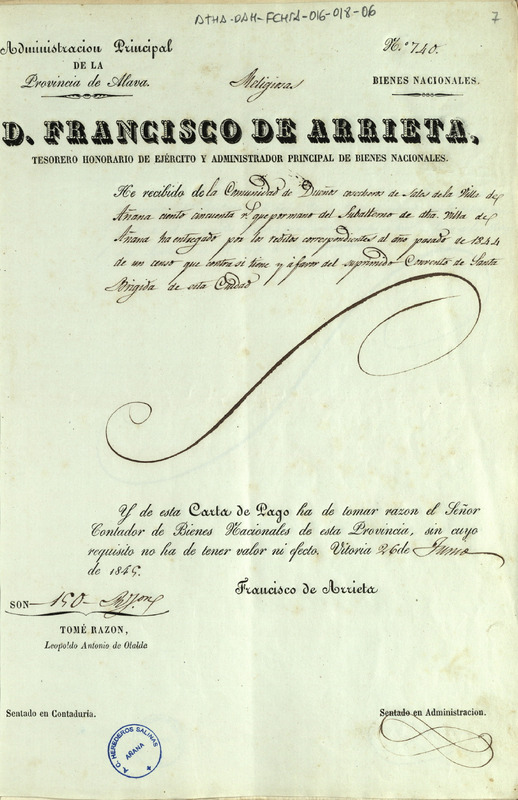 ATHA-DAH-FCHSA-016-018-06
7
Administracion Principal
DE LA
Provincia de Alava.
Religiosas
N.º 740.
BIENES NACIONALES.
D. FRANCISCO DE ARRIETA,
TESORERO HONORARIO DE EJÉRCITO Y ADMINISTRADOR PRINCIPAL DE BIENES NACIONALES.
He recibido de la Comunidad de Dueños cosecheros de Sales de la Villa de
Añana ciento cincuenta r.s que por mano del Subalterno de dha. villa de
Añana ha entregado por los reditos correspondientes al año pasado de 1844
de un censo que contra si tiene y á favor del suprimido Convento de Santa
Brigida de esta Ciudad
Y de esta Carta de Pago ha de tomar razon el Señor
Contador de Bienes Nacionales de esta Provincia, sin cuyo
requisito no ha de tener valor ni efecto. Vitoria 26 de Junio
de 1845.
Francisco de Arrieta
SON 150 Rs. von
TOMÉ RAZON,
Leopoldo Antonio de Olalde
Sentado en Contaduría.
Sentado en Administracion.
A. C. HEREDEROS SALINAS
AÑANA